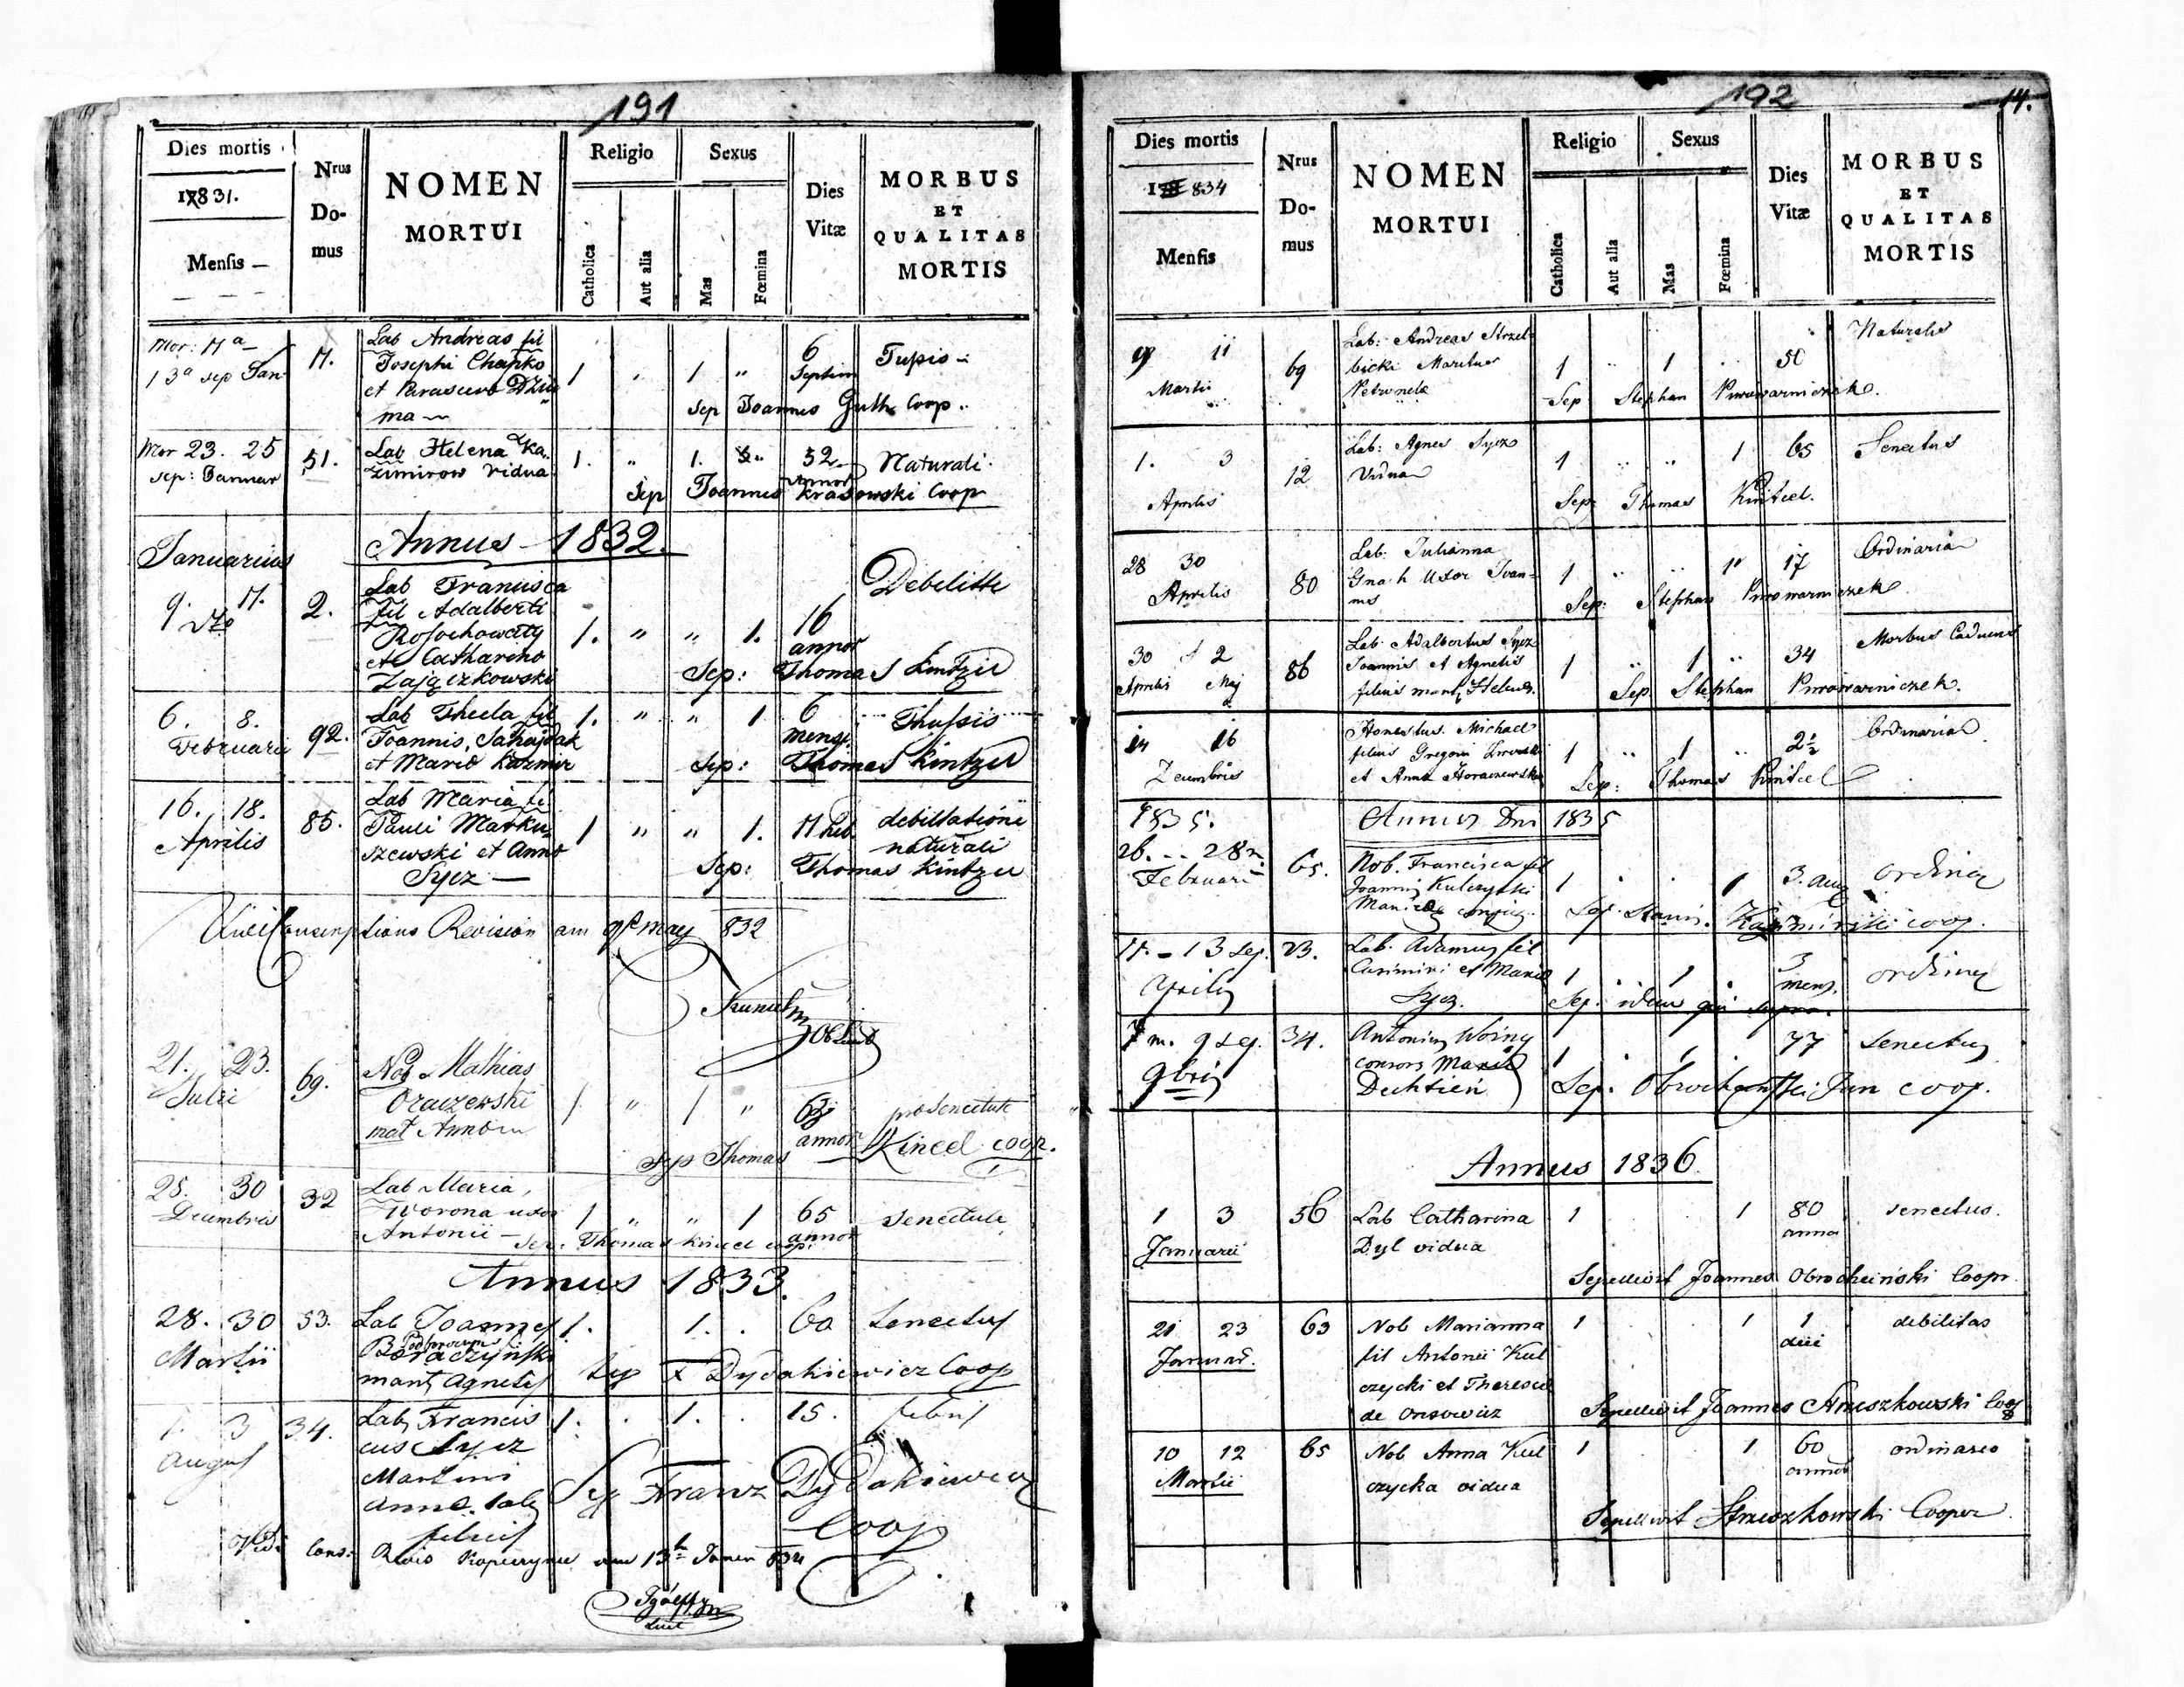 191
Dies mortis
1831.
Mensis
Nrus
Do-
mus
NOMEN
MORTUI
Religio
Catholica
Aut alia
Sexus
Mas
Fœmina
Dies
Vitæ
MORBUS
ET
QUALITAS
MORTIS
Mor: 11a
13a sep Jan
11.
Lab Andreas fil
Josephi Chapko
et Parasceva Dziu
ma
1 " 1 "
6
Septim
Tussis
Sep Joannes Guth Coop.
Mor 23. 25
sep: Januar
51.
Lab Helena Ka
zimirow vidua
1. " 1. "
52
annor
Naturali
Sep Joannes Krasowski Coop
Annus 1832.
Januarius
9. 11.
2.
Lab Francisca
fil Adalberti
Rosochowaty
et Catharina
Zajączkowski
1. " " 1.
16
annor
Debilitte
Sep: Thomas Kintzel
6. 8.
Februarii
92.
Lab Thecla fil
Joannis Sahajdak
et Maria Kazmir
1. " " 1
6
mens.
Thussis
Sep: Thomas Kintzel
16. 18.
Aprilis
85.
Lab Maria fil
Pauli Marku
szewski et Anna
Sycz
1 " " 1.
11 heb.
debilitatione
naturali
Sep: Thomas Kintzel
Revision am 9t May 832
21. 23.
Julii
69.
Nob Mathias
Oraczewski
mat Anna
1 " 1 "
63
annor
pro Senectute
Sep Thomas Kincel coop.
28. 30
Decembris
32
Lab Maria
Worona uxor
Antonii
1 " " 1
65
annor
Senectute
Sep: Thomas Kincel coop:
Annus 1833.
28. 30
Martii
53.
Lab Joannes
Boraczyński
marit Agnetis
1. 1.
60
Senectus
Sep F Dydakiewicz Coop
1. 3
August
34.
Lab Francis
cus Sycz
Martini
Anna
filius
1. 1.
15.
febris
Sep Franz Dydakiewicz
Coop
Vidi Cons: Revis
192
14.
Dies mortis
1834
Mensis
Nrus
Do-
mus
NOMEN
MORTUI
Religio
Catholica
Aut alia
Sexus
Mas
Fœmina
Dies
Vitæ
MORBUS
ET
QUALITAS
MORTIS
9 11
Martii
69
Lab: Andreas Strzel
bicki Maritus
Petronela
1 1
50
Naturalis
Sep Stephan Piwowarniczek.
1. 3
Aprilis
12
Lab: Agnes Sycz
Vidua
1 1
65
Senectus
Sep: Thomas Kintzel.
28 30
Aprilis
80
Lab: Julianna
Gnah Uxor Ivan
nis
1 1
17
Ordinaria
Sep: Stephan Piwowarniczek
30 2
Aprilis Maj
86
Lab: Adalbertus Sycz
Joannis et Agnetis
filius marit Helena
1 1
34
Morbus Caducus
Sep Stephan Piwowarniczek.
14 16
Decembris
Honestus Michael
filius Gregorii
et Anna Horaczewska
1 1
2½
Ordinaria
Sep: Thomas Kintzel
1835.
Annus Dni 1835
26. 28
Februarii
65.
Nob. Francisca fil
Joannis Kulczycki
1 1
3. ann
ordinar
Sep. Stanis. Kazimirski coop.
11. - 13 sep.
Aprilis
23.
Lab. Adamus fil
Casimiri et Maria
Sycz.
1 1
3
mens.
ordinar
Sep. idem qui supra.
7 m. 9 sep.
9bris
34.
Antonius Woiny
consors Maria
Dechtień
1 1
77
senectus
Sep: Obrocheński Jan coop.
Annus 1836.
1 3
Januarii
56
Lab Catharina
Dyl vidua
1 1
80
annor
senectus.
Sepelivit Joannes Obrocheński Coopr.
21 23
Januar.
63
Nob Marianna
fil Antonii Kul
czycki et Theresia
de Orsowicz
1 1
1
diei
debilitas
Sepelivit Joannes Struszkowski Coop
10 12
Martii
65
Nob Anna Kul
czycka vidua
1 1
60
annor
ordinario
Sepelivit Struszkowski Cooper